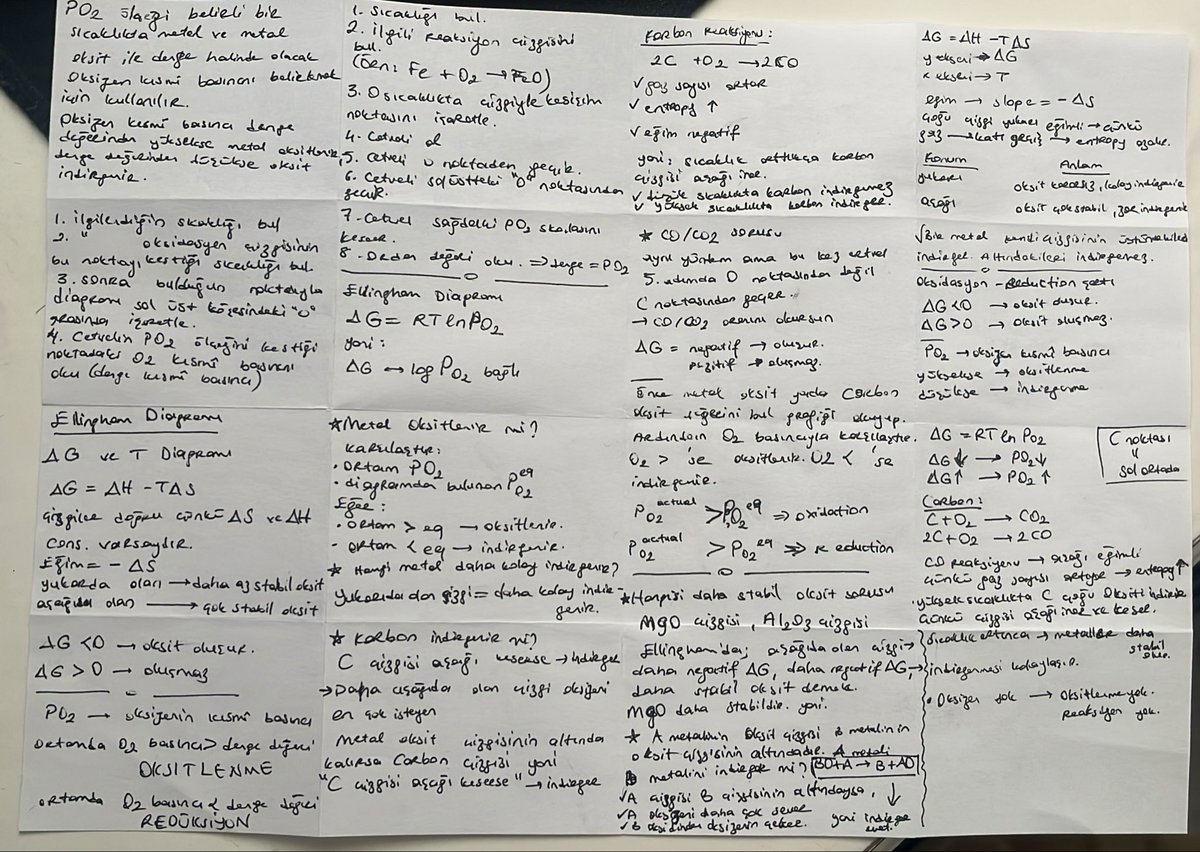 PO2 ölçeği belirli bir
sıcaklıkta metal ve metal
oksit ile denge halinde olacak
Oksijen kısmi basıncı belirlemek
için kullanılır.
Oksijen kısmi basıncı denge
değerinden yüksekse metal oksitlenir,
denge değerinden düşükse oksit
indirgenir.
1. İlgilendiğin sıcaklığı bul
2. " oksidasyon çizgisinin
bu noktayı kestiği sıcaklığı bul.
3. sonra bulduğun noktayla
diagramı sol üst köşesindeki "O"
arasında işaretle.
4. Cetvelin PO2 ölçeğini kestiği
noktadaki O2 kısmî basıncı
oku (denge kısmî basıncı)
Ellingham Diagramı
ΔG ve T Diagramı
ΔG = ΔH - TΔS
çizgiler doğru çünkü ΔS ve ΔH
cons. varsaydır.
Eğim = - ΔS
yukarda olan → daha az stabil oksit
aşağıda olan → çok stabil oksit
ΔG < 0 → oksit oluşur.
ΔG > 0 → oluşmaz
PO2 → oksijenin kısmi basıncı
ortamda O2 basıncı > denge değeri
OKSITLENME
ortamda O2 basıncı < denge değeri
REDÜKSIYON
1. Sıcaklığı bul.
2. İlgili reaksiyon çizgisini
bul.
(Örn: Fe + O2 → FeO)
3. O sıcaklıkta çizgiyle kesişim
noktasını işaretle.
4. Cetveli al
5. Cetveli o noktadan geçir.
6. Cetveli sol üstteki "O" noktasından
geçir.
7. Cetvel sağdaki PO2 skalasını
keser.
8. Ordan değeri oku. ⇒ denge = PO2
Ellingham Diagramı
ΔG = RT ln PO2
yani:
ΔG ↔ log PO2 bağlı
★ Metal oksitlenir mi?
karşılaştır:
• ortam PO2
• diagramdan bulunan PO2 eq
Eğer:
• ortam > eq → oksitlenir.
- ortam < eq → indirgenir.
★ Hangi metal daha kolay indirgenir?
yukarıda olan çizgi = daha kolay indir-
genir.
★ Karbon indirgenir mi?
C çizgisi aşağı keserse → indirger
→ Daha aşağıda olan çizgi oksijeni
en çok isteyen
metal oksit çizgisinin altında
kalırsa Carbon çizgisi yani
"C çizgisi aşağı keserse" → indirger
Karbon Reaksiyonu:
2C + O2 → 2CO
✓ gaz sayısı artar
✓ entropy ↑
✓ eğim negatif
yani: sıcaklık arttıkça karbon
çizgisi aşağı iner.
✓ düşük sıcaklıkta karbon indirgemez
✓ yüksek sıcaklıkta karbon indirger.
★ CO/CO2 sorusu
aynı yöntem ama bu kez cetvel
5. adımda O noktasından değil
C noktasından geçer.
→ CO/CO2 oranını okursun
ΔG = negatif → oluşur.
pozitif → oluşmaz.
Önce metal oksit yada Carbon
oksit eğrisini bul grafiği okuyup.
Ardından O2 basıncıyla karşılaştır.
O2 > 'se oksitlenir. O2 < 'se
indirgenir.
PO2 actual > PO2 eq ⇒ oxidation
PO2 actual > PO2 eq ⇒ reduction
★ Hangisi daha stabil oksit sorusu
MgO çizgisi, Al2O3 çizgisi
Ellingham'da; aşağıda olan çizgi →
daha negatif ΔG, daha negatif ΔG →
daha stabil oksit demek.
MgO daha stabildir. yani.
★ A metalinin oksit çizgisi B metalinin
oksit çizgisinin altındadır. A metali
B metalini indirger mi? BO+A → B+AO
✓ A çizgisi B çizgisinin altındaysa,
✓ A oksijeni daha çok sever
✓ B oksidinden oksijenin çeker. yani indirger
evet.
ΔG = ΔH - TΔS
y ekseni → ΔG
x ekseni → T
eğim → slope = - ΔS
çoğu çizgi yukarı eğimli → çünkü
gaz → katı geçiş → entropy azalır.
Konum Anlam
yukarı oksit kararsız, kolay indirgenir
aşağı oksit çok stabil, zor indirgenir
√ Bir metal kendi çizgisinin üstündekileri
indirger. Altındakileri indirgemez.
Oksidasyon - Reduction şartı
ΔG < 0 → oksit oluşur.
ΔG > 0 → oksit oluşmaz.
PO2 → oksijen kısmi basıncı
yüksekse → oksitlenme
düşükse → indirgenme
ΔG = RT ln PO2
ΔG ↓ → PO2 ↓
ΔG ↑ → PO2 ↑
C noktası
"
sol ortada
Carbon:
C + O2 → CO2
2C + O2 → 2CO
CO reaksiyonu → aşağı eğimli
çünkü gaz sayısı artıyor → entropy ↑
yüksek sıcaklıkta C çoğu oksiti indirger
çünkü çizgisi aşağı iner ve keser.
Sıcaklık artınca → metaller daha
stabil olur.
indirgenmesi kolaylaşır.
• Oksijen yok → Oksitlenme yok.
Reaksiyon yok.